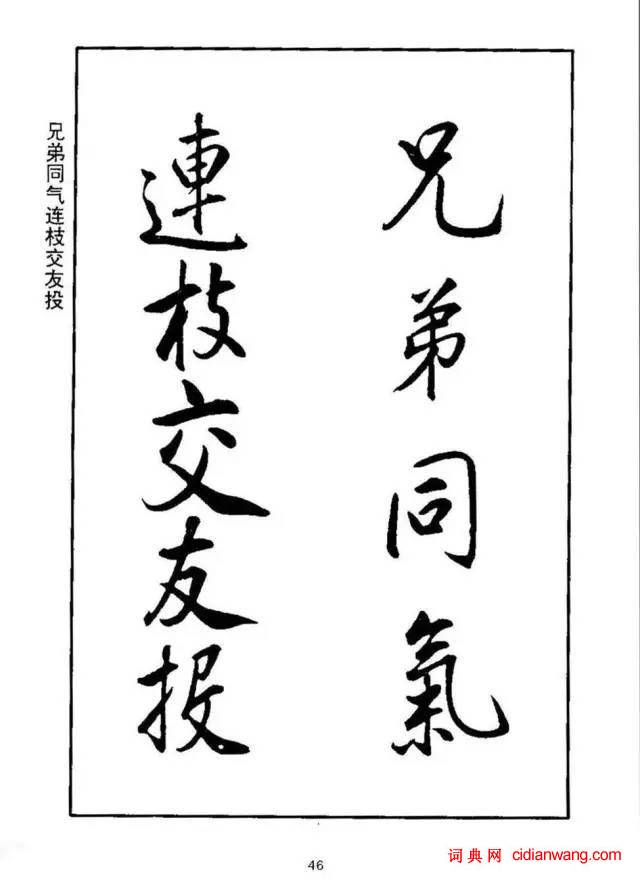 兄弟同氣
連枝交友投
兄弟同气连枝交友投
46
词典网 cidianwang.com